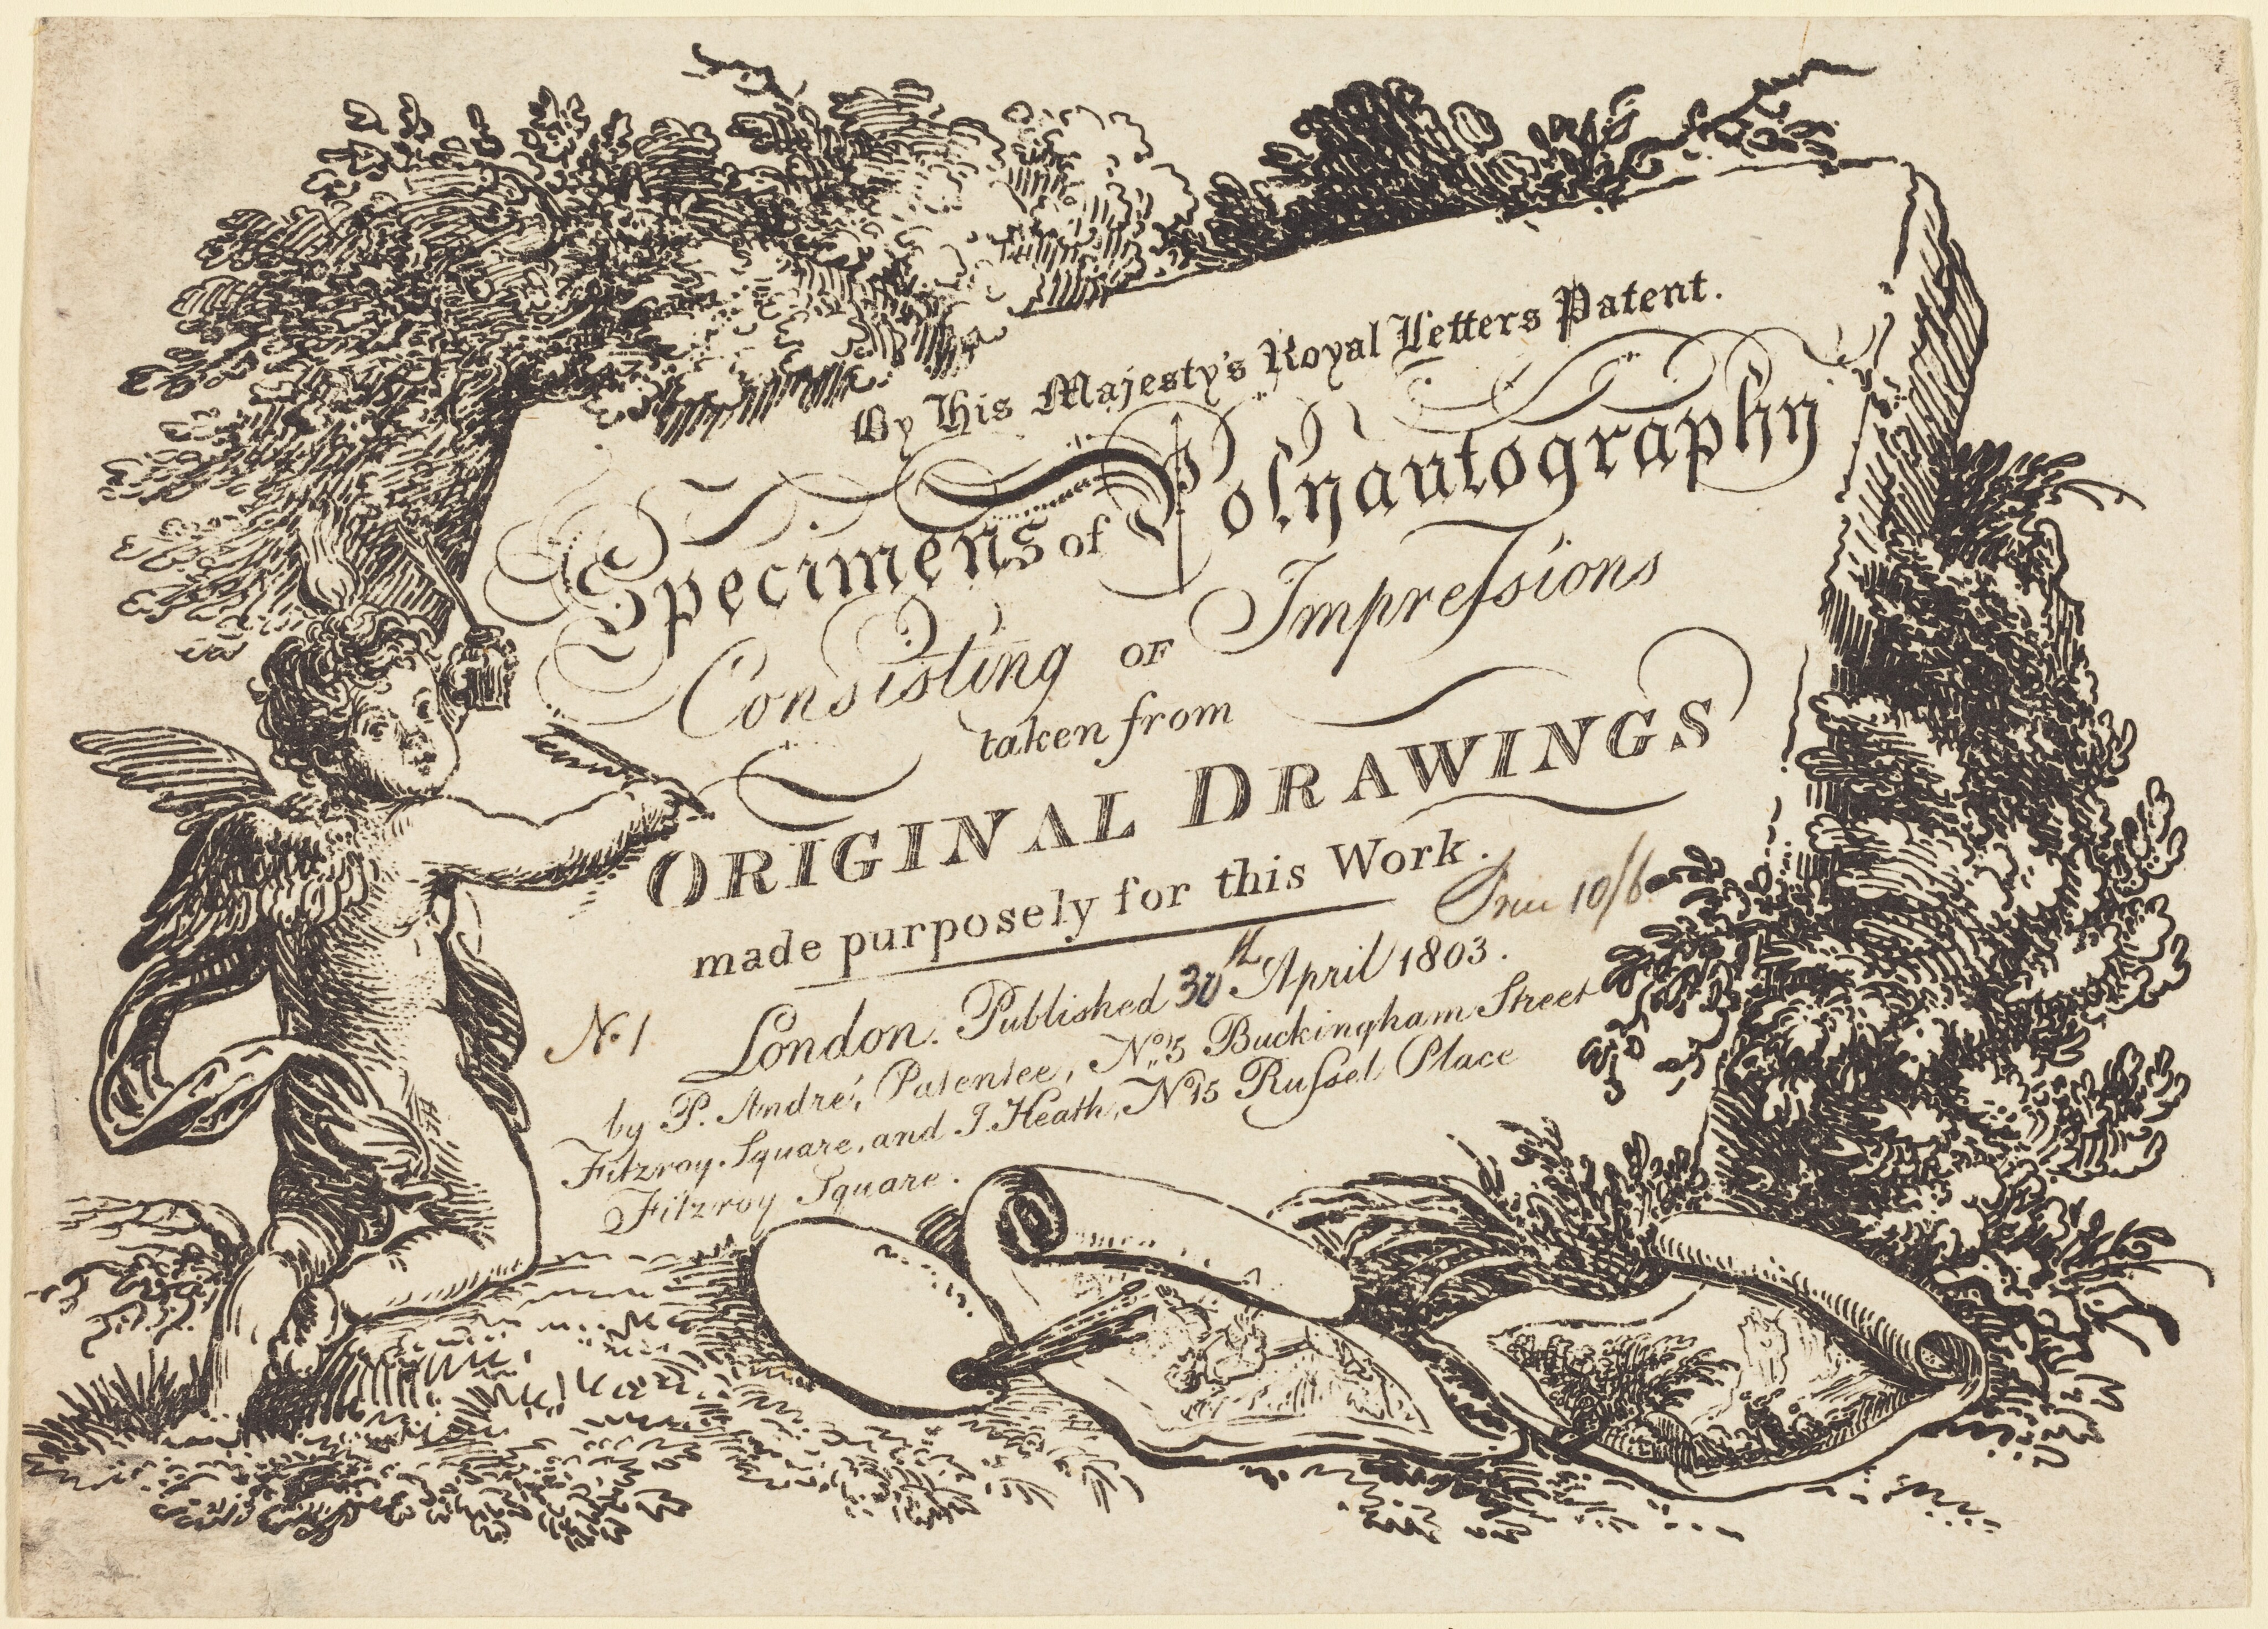 By His Majesty's Royal Letters Patent.
Specimens of Polyautography
Consisting OF Impreſsions
taken from
ORIGINAL DRAWINGS
made purposely for this Work.
Price 10/6
London. Published 30th April 1803.
No 1
by P. André, Patentee, No. 5 Buckingham Street
Fitzroy Square, and J. Heath, No 15 Ruſsel Place
Fitzroy Square.